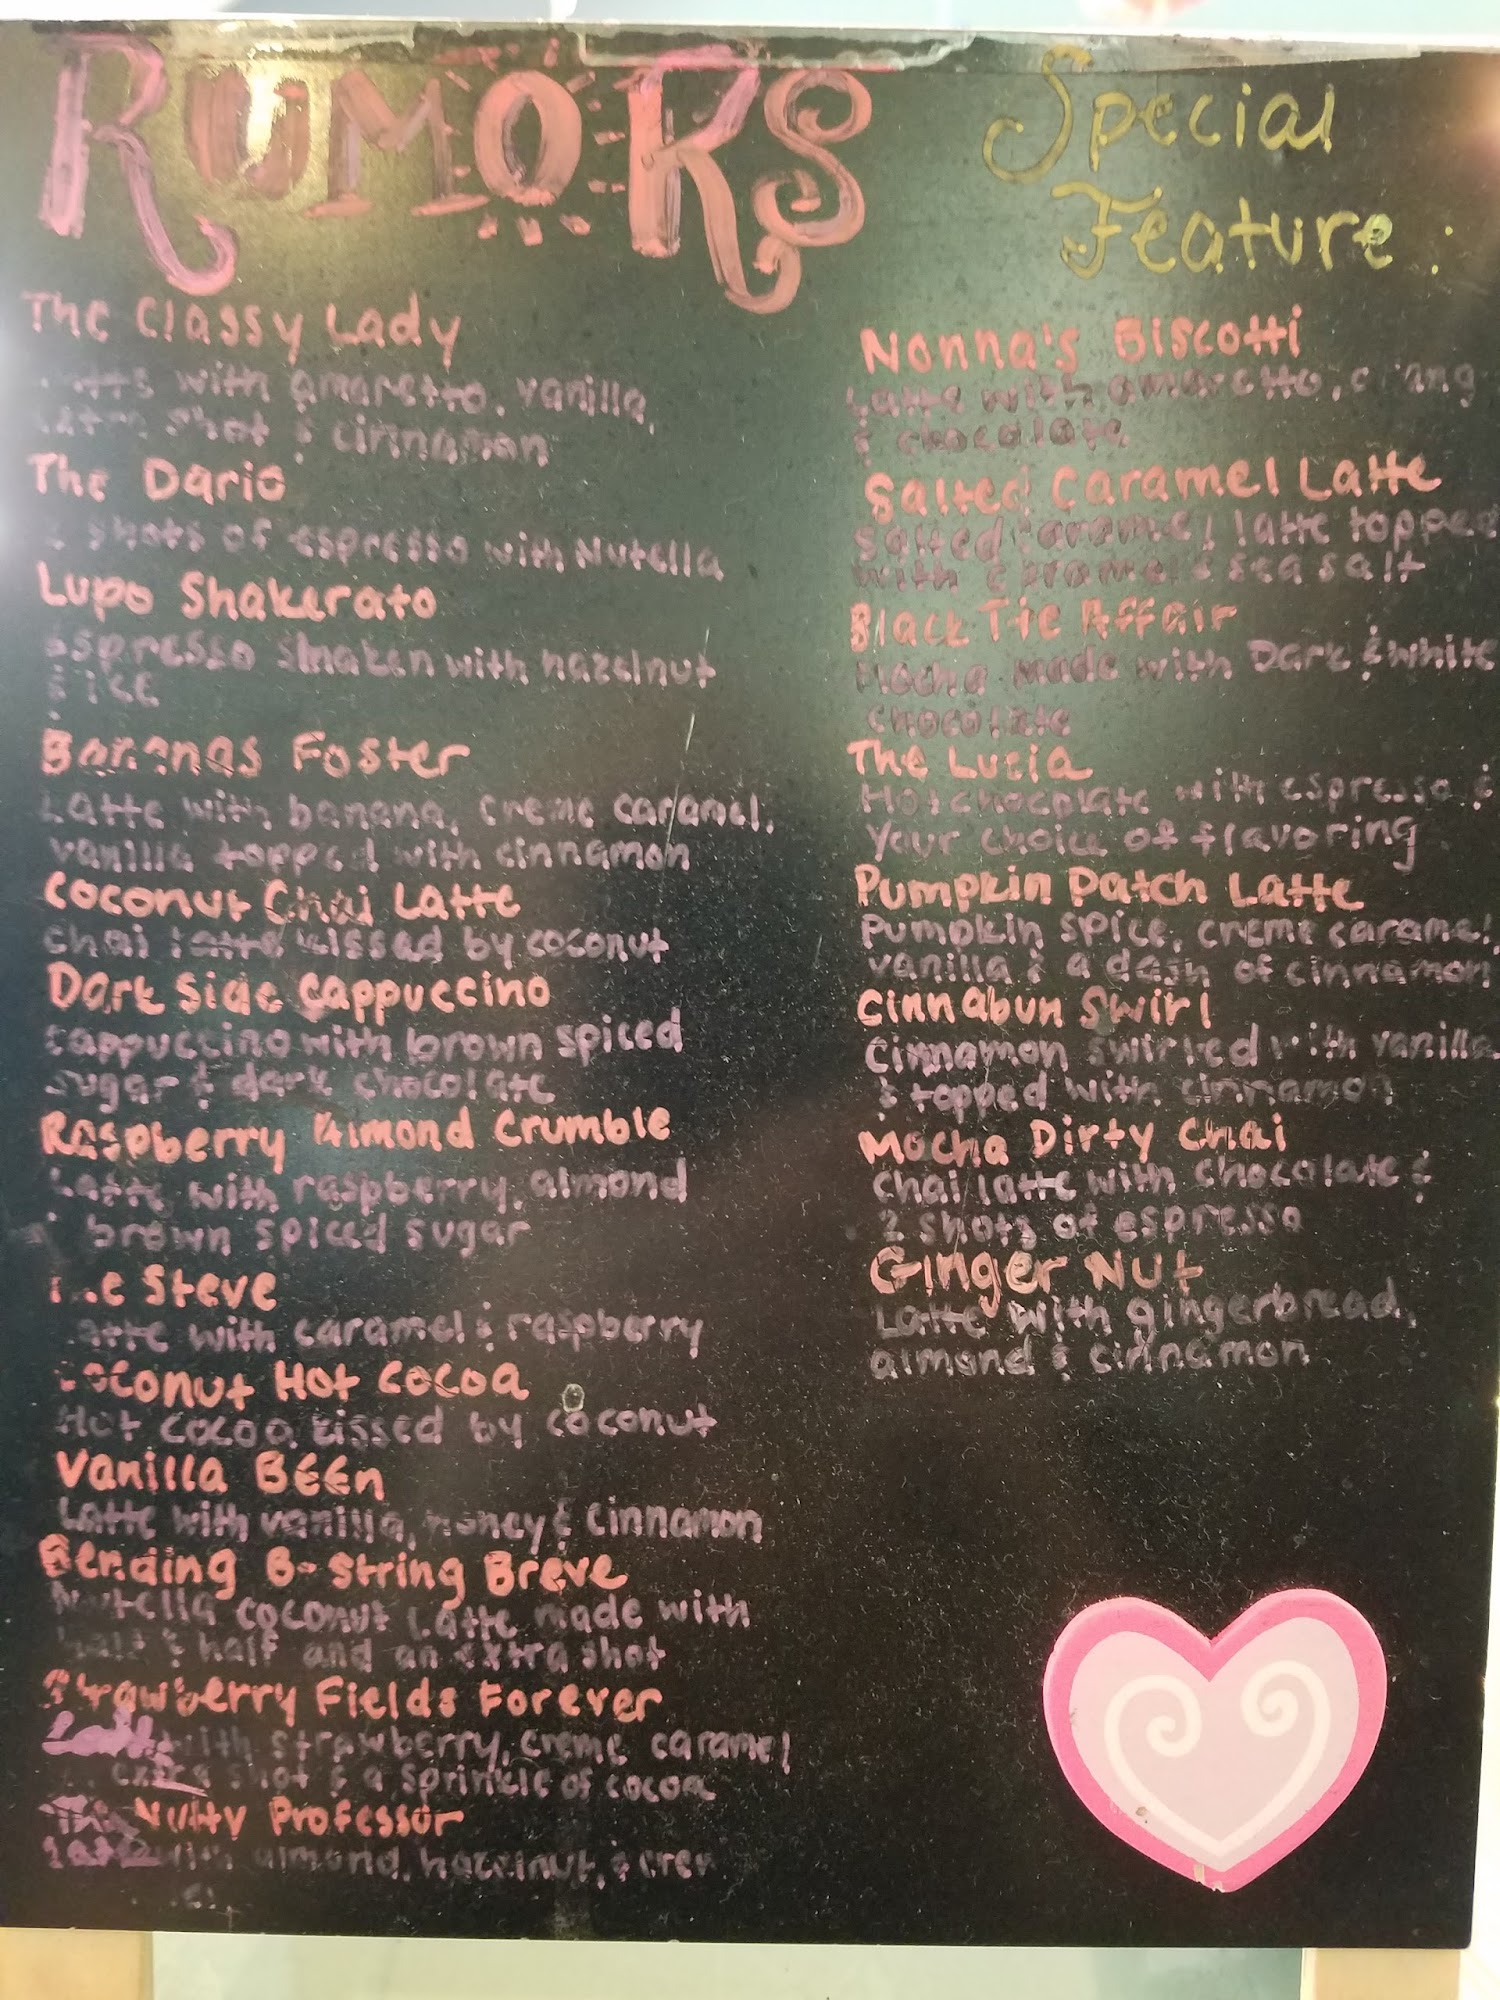 RUMORS
Special
Feature:
The Classy Lady
with amaretto, vanilla,
shot & cinnamon
The Dario
shots of espresso with Nutella
Lupo Shakerato
espresso shaken with hazelnut
& ice
Bananas Foster
Latte with banana, creme caramel,
vanilla topped with cinnamon
Coconut Chai Latte
Chai latte kissed by coconut
Dark Side Cappuccino
Cappuccino with brown spiced
sugar & dark chocolate
Raspberry Almond Crumble
Latte with raspberry, almond
brown spiced sugar
The Steve
Latte with caramel & raspberry
Coconut Hot Cocoa
Hot Cocoa kissed by coconut
Vanilla BEEn
Latte with vanilla, honey & cinnamon
Bending B-String Breve
Nutella coconut Latte made with
half & half and an extra shot
Strawberry Fields Forever
Latte with strawberry, creme caramel
extra shot & a sprinkle of cocoa
The Nutty Professor
Latte with almond, hazelnut, &
Nonna's Biscotti
Latte with amaretto, orang
& chocolate
Salted Caramel Latte
Salted Caramel latte topped
with caramel & sea salt
Black Tie Affair
Mocha made with Dark & white
chocolate
The Luzia
Hot chocolate with espresso &
your choice of flavoring
Pumpkin Patch Latte
Pumpkin spice, creme caramel,
vanilla & a dash of cinnamon
Cinnabun Swirl
Cinnamon swirled with vanilla
& topped with cinnamon
Mocha Dirty Chai
Chai latte with chocolate &
2 shots of espresso
Ginger Nut
Latte with gingerbread,
almond & cinnamon